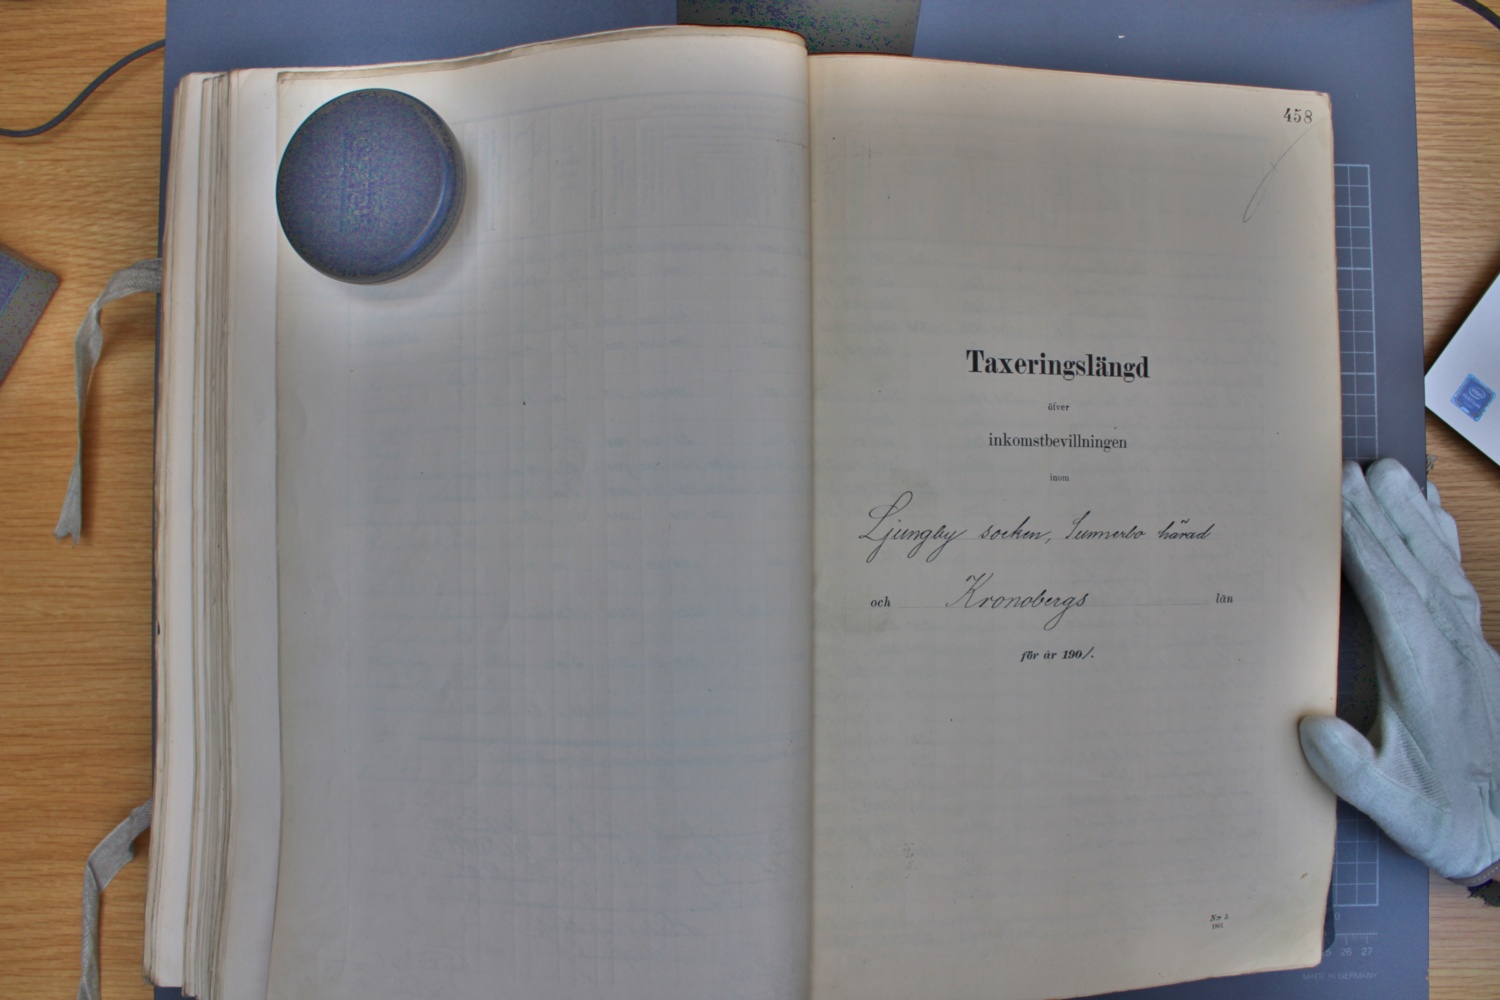 458
Taxeringslängd
öfver
inkomstbevillningen
inom
Ljungby socken, Sunnerbo härad
och Kronobergs län
för år 190/.
Nr 3.
1901
26 27
MADE IN GERMANY